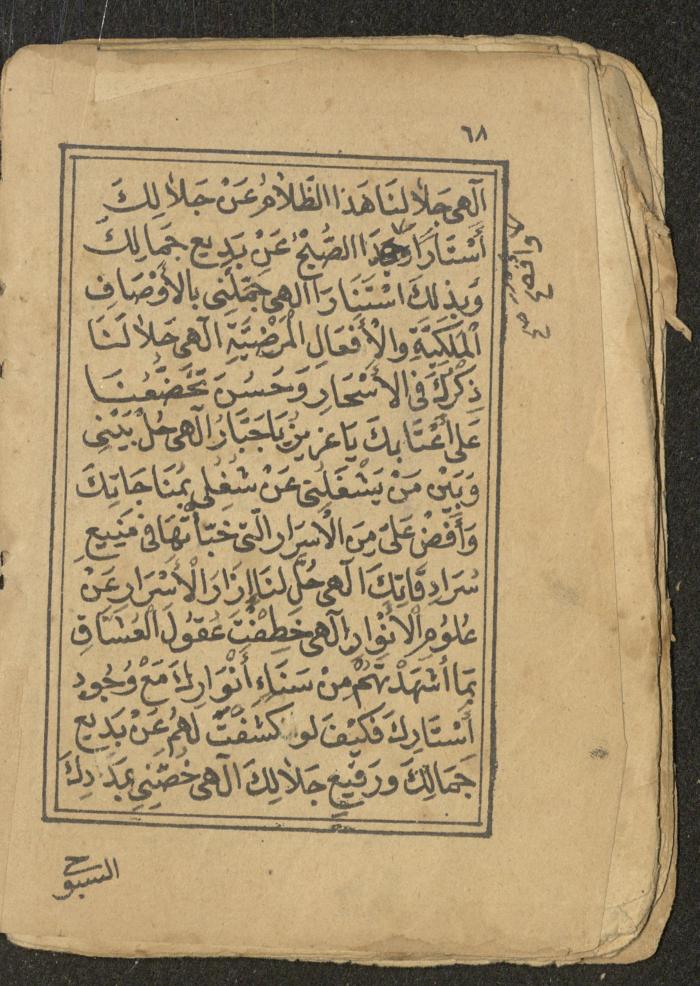 ٦٨
الهى جَلالَنَا هَذا الظَّلَامُ عَنْ جَلَالِكَ
أَسْتَارًا وَبَدَا الصُّبْحُ عَنْ بَدِيعِ جَمَالِكَ
وَبِذلِكَ اسْتَنَارَا الهى جَمِّلْنى بالأَوْصَافِ
الْمَلَكِيَّةِ والْأَفْعَالِ الْمَرْضِيَّةِ الهى حَلالَنَا
ذِكْرُكَ فى الأَسْحَارِ وَحَسُنَ تَخَضُّعُنَا
عَلى أَعْتَابِكَ يَا عَزِيزُ يَا جَبَّارُ الهى حُلْ بَيْنِى
وَبَيْنَ مَنْ يَشْغَلُنِى عَنْ شغْلِى بِمُنَاجَاتِكَ
وَأَفِضْ عَلَىَّ مِنَ الْأَسْرَارِ الَّتى خَبَّأْتَهَا فى مَنِيعِ
سُرَادِقَاتِكَ الهى حُلَّ لنَا إِزَارَ الْأَسْرَارِ عَنْ
عُلُومِ الْأَنْوَارِ الهى خَطِفْتَ عُقُولَ الْعُشَّاقِ
بِمَا أَشْهَدْتَهُمْ مِنْ سَنَاءِ أَنْوَارِكَ مَعْ وُجُودِ
أَسْتَارِكَ فَكَيْفَ لو كَشَفْتَ لَهُمْ عَنْ بَدِيعِ
جَمَالِكَ ورَفِيعِ جَلَالِكَ الهى خُصَّنِى بِمَدَدِكَ
السبوح